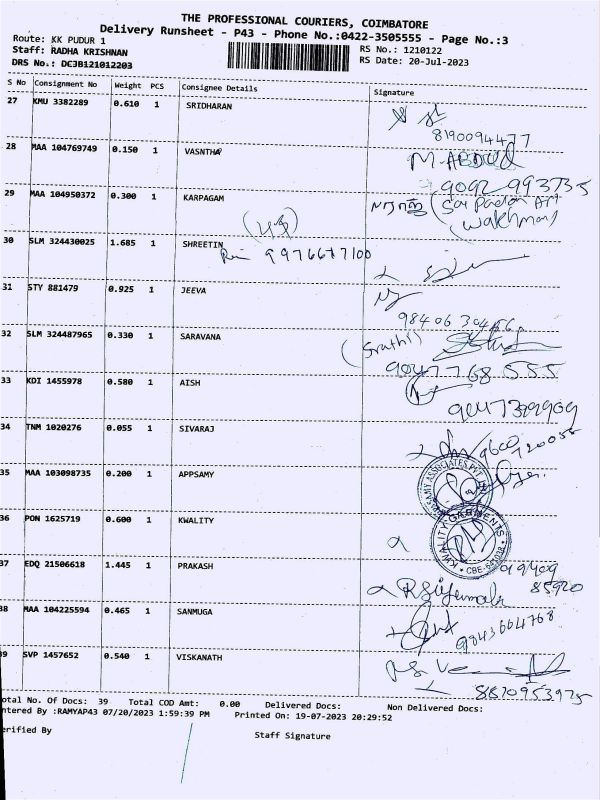 THE PROFESSIONAL COURIERS, COIMBATORE
Delivery Runsheet - P43 - Phone No.:0422-3505555 - Page No.:3
Route: KK PUDUR 1
Staff: RADHA KRISHNAN
RS No.: 1210122
DRS No.: DCJB121012203
RS Date: 20-Jul-2023
S No Consignment No Weight PCS Consignee Details Signature
27 KMU 3382289 0.610 1 SRIDHARAN
8190094477
28 MAA 104769749 0.150 1 VASNTHA M-ABDUL
9092 993735
29 MAA 104950372 0.300 1 KARPAGAM
30 SLM 324430025 1.685 1 SHREETIN
31 STY 881479 0.925 1 JEEVA
32 SLM 324487965 0.330 1 SARAVANA
9047768555
33 KDI 1455978 0.580 1 AISH
34 TNM 1020276 0.055 1 SIVARAJ
35 MAA 103098735 0.200 1 APPSAMY
36 PON 1625719 0.600 1 KWALITY
KWALITY GARMENTS
37 EDQ 21506618 1.445 1 PRAKASH
38 MAA 104225594 0.465 1 SANMUGA
9843664768
39 SVP 1457652 0.540 1 VISKANATH
8870953975
otal No. Of Docs: 39 Total COD Amt: 0.00 Delivered Docs: Non Delivered Docs:
ntered By :RAMYAP43 07/20/2023 1:59:39 PM Printed On: 19-07-2023 20:29:52
erified By
Staff Signature